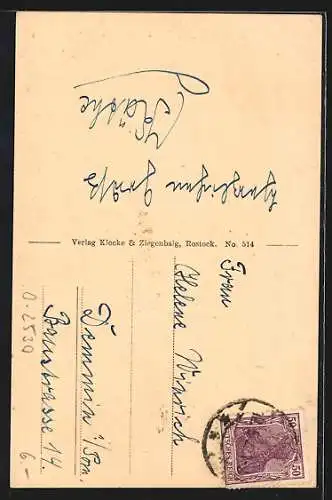 Herzlichen Gruß
Käthe
Verlag Klocke & Ziegenhalg, Rostock. No. 514
Frau
Helene Wünrich
Demmin i/Pom.
Baustrasse 14.
0-2530
6-
50 50